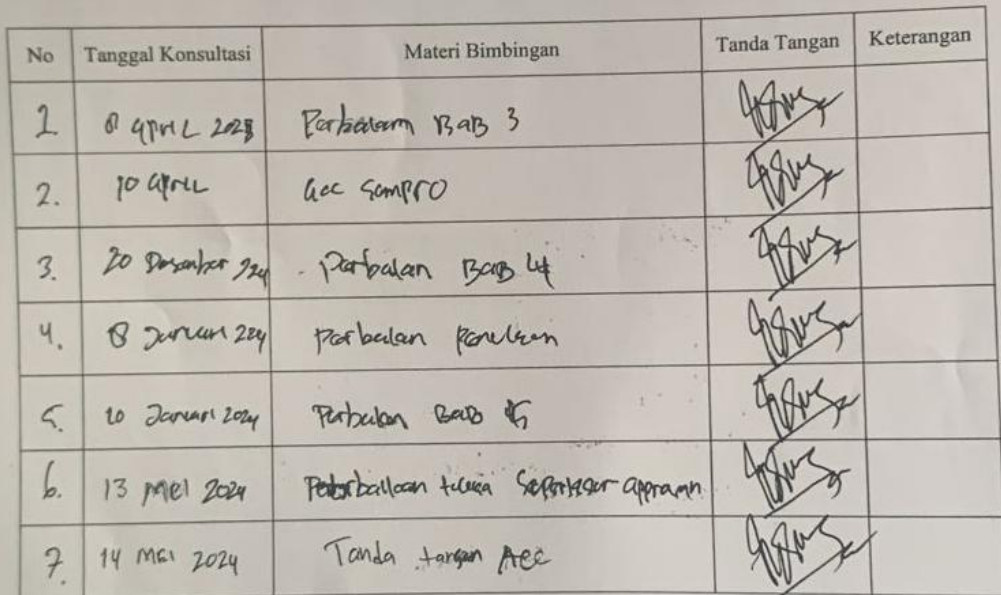 No Tanggal Konsultasi Materi Bimbingan Tanda Tangan Keterangan
1. 8 April 2023 Perbaikan BAB 3
2. 10 April Acc Sempro
3. 20 Desember Perbaikan Bab 4
4. 8 Januari Perbaikan Penulisan
5. 20 Januari 2024 Perbaikan Bab 5
6. 13 Mei 2024
7. 14 Mei 2024 Tanda tangan Acc